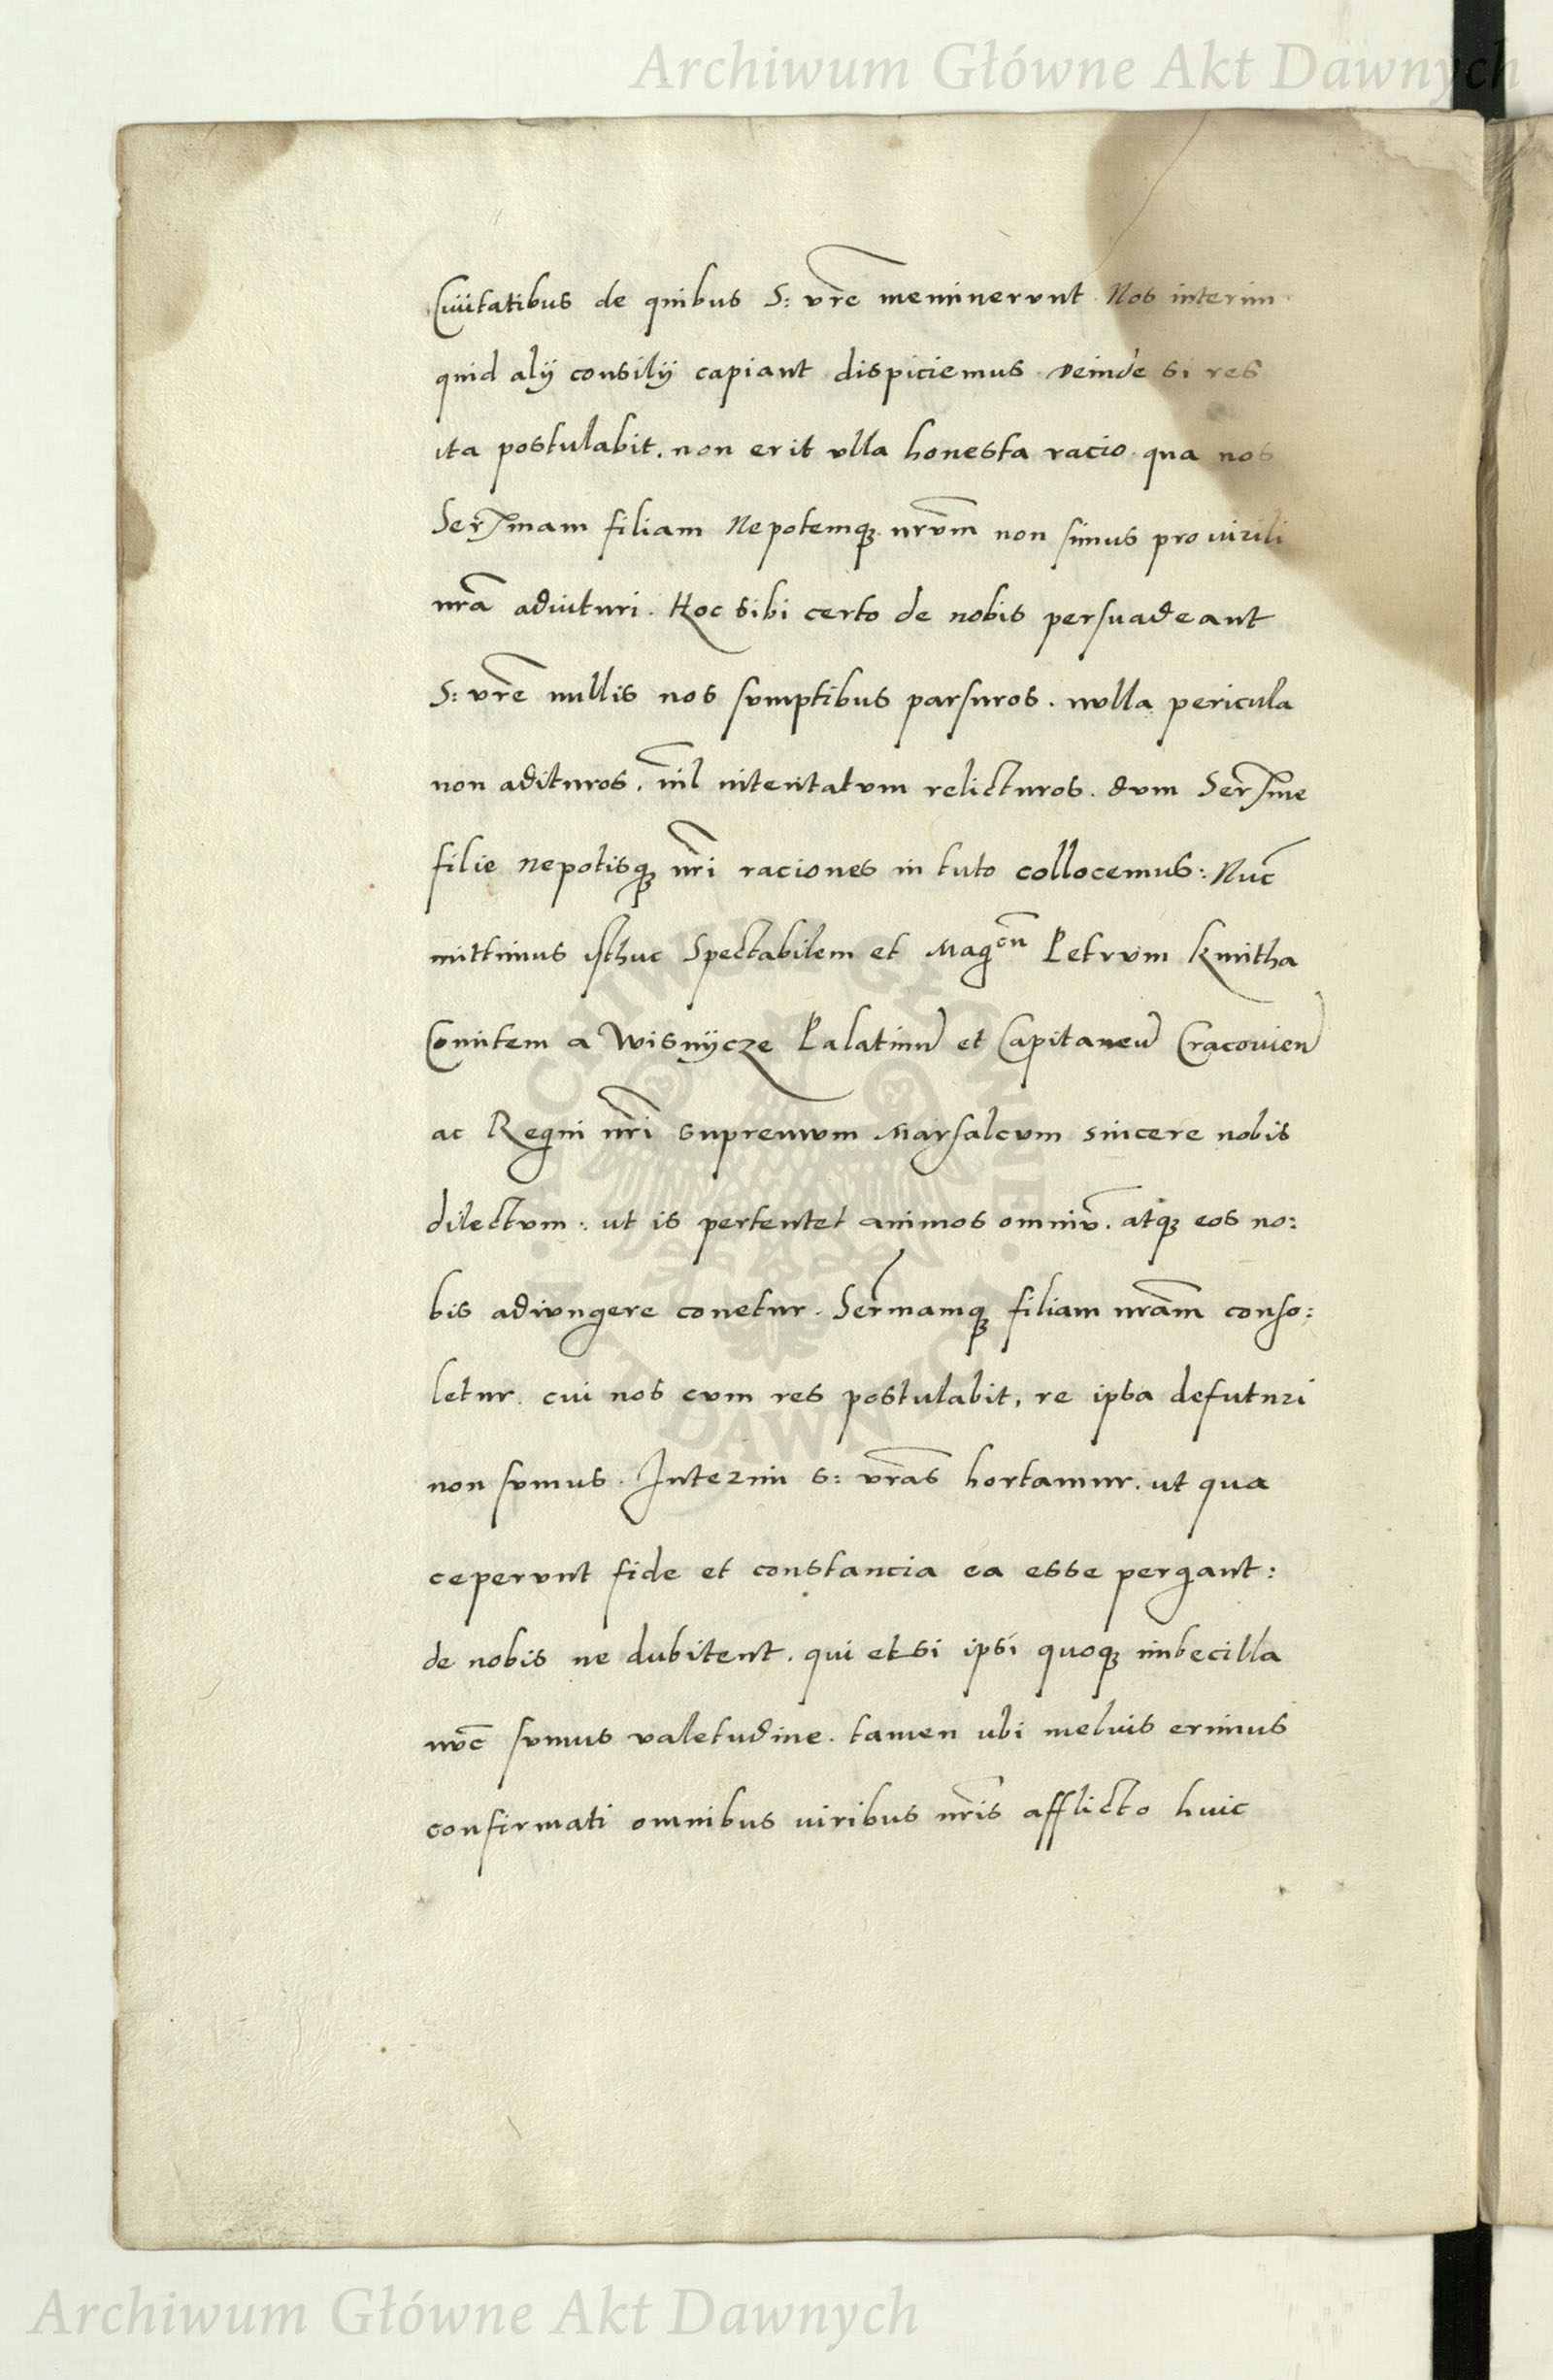 Archiwum Główne Akt Dawnych
Ciuitatibus de quibus S: vr̃e meminerunt. Nos interim
quid alÿ consilÿ capiant dispiciemus. Deinde si res
ita postulabit. non erit vlla honesta racio. qua nos
Ser^mam filiam Nepotemq₃ nr̃vm non simus pro virili
nr̃a adiuturi. Hoc sibi certo de nobis persuadeant
S: vr̃e nullis nos sumptibus parsuros. nulla pericula
non adituros. nĩl intentatvm relicturos. dvm Ser^me
filie nepotisq₃ nr̃i raciones in tuto collocemus: Nuc̃
mittimus isthuc Spectabilem et Mag^cu Petrvm kmitha
Comitem a Wisnÿcze Palatinũ et Capitaneũ Cracouieñ
ac Regni nr̃i supremvm Marsalcvm sincere nobis
dilectvm: ut is pertentet animos omniũ. atq₃ eos no:
bis adiungere conetur. Ser̃mamq₃ filiam nr̃am conso:
letur. cui nos cvm res postulabit, re ipsa defuturi
non svmus. Interim S: vr̃as hortamur. ut qua
ceperunt fide et constancia ea esse pergant:
de nobis ne dubitent. qui etsi ipsi quoq₃ imbecilla
nvc̃ svmus valetudine. tamen ubi melius erimus
confirmati omnibus uiribus nr̃is afflicto huic
Archiwum Główne Akt Dawnych